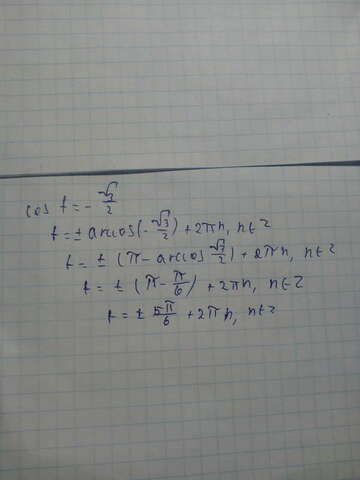 cos t = - √3/2
t = ± arccos(- √3/2) + 2πn, n∈Z
t = ± (π - arccos √3/2) + 2πn, n∈Z
t = ± (π - π/6) + 2πn, n∈Z
t = ± 5π/6 + 2πn, n∈Z